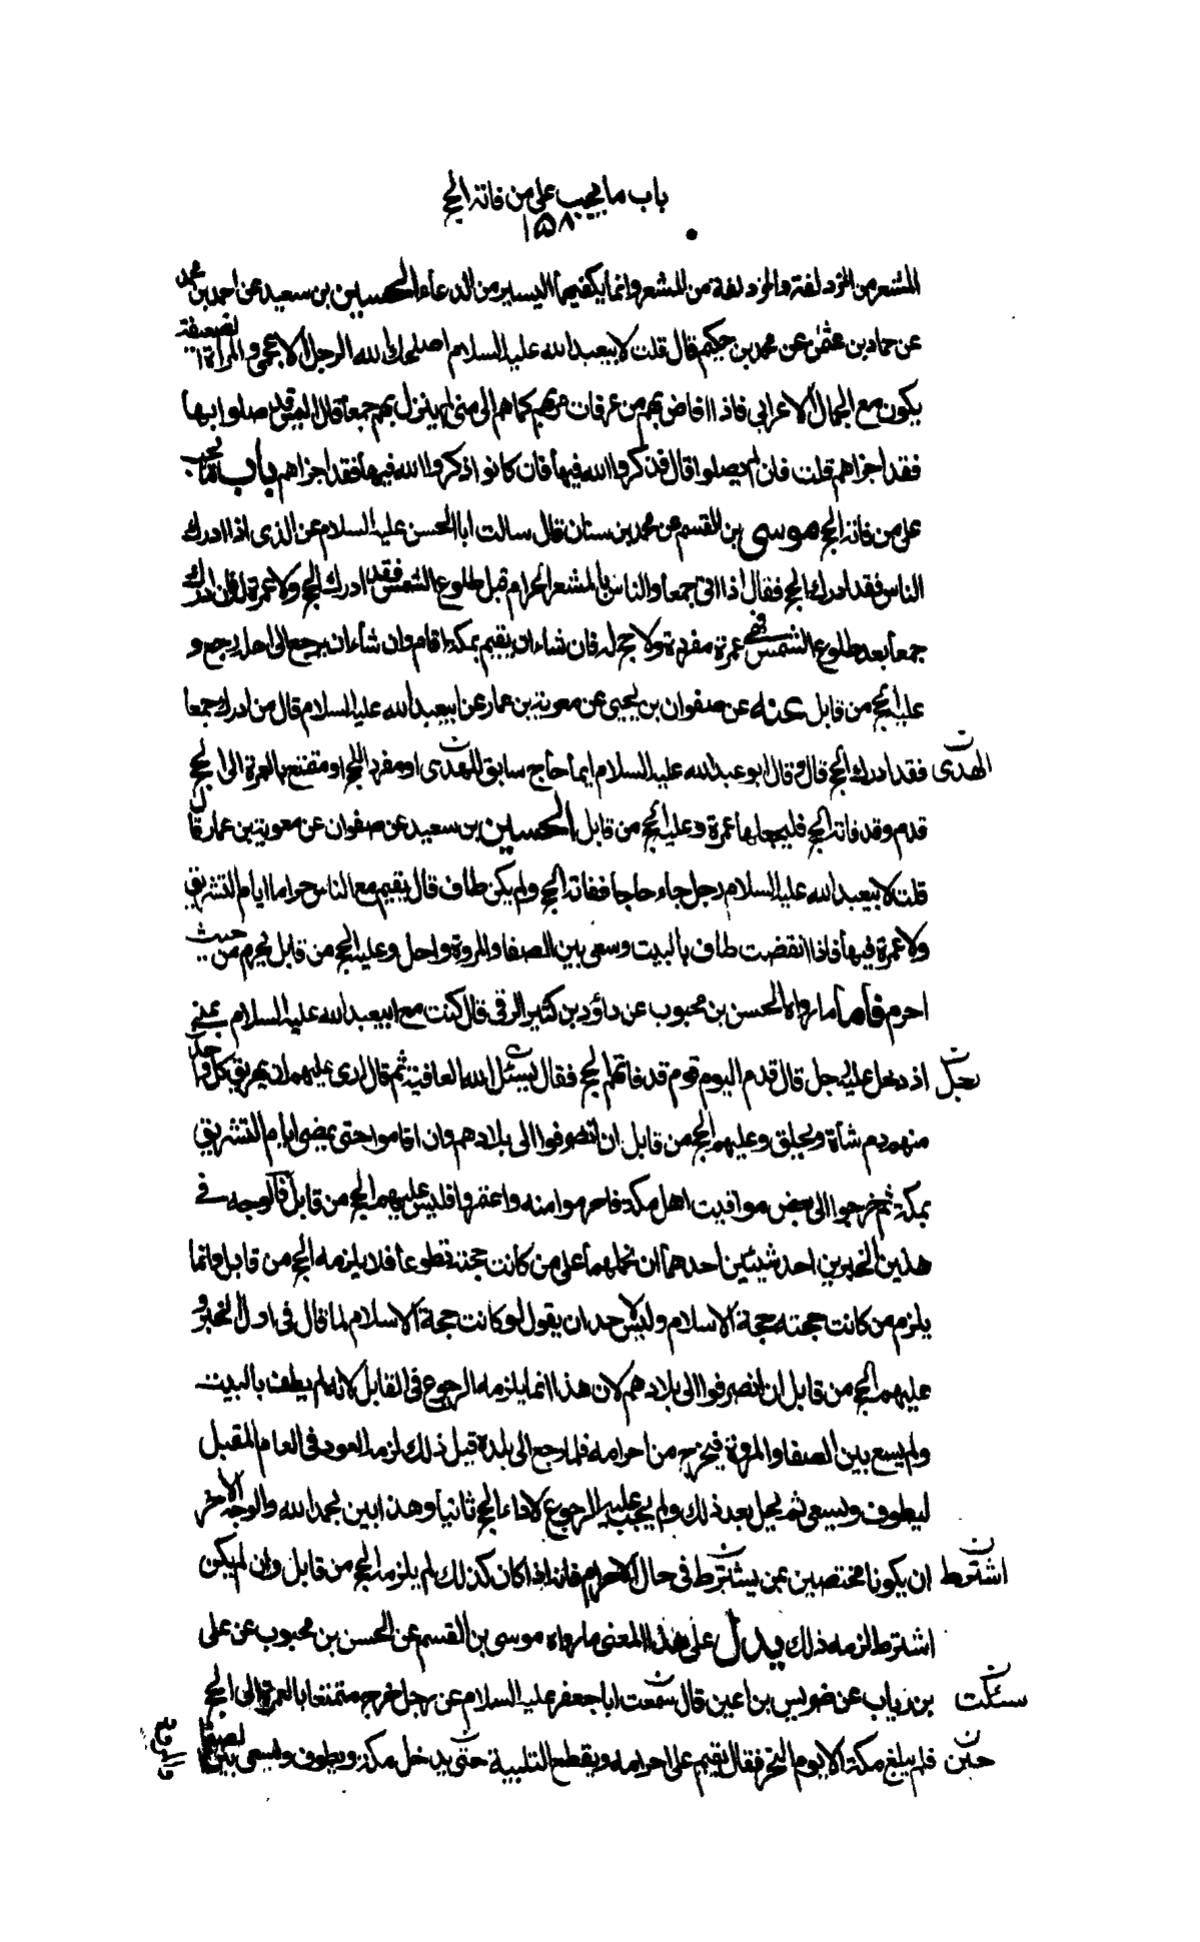 باب ما يجب على من فاته الحج
١٥٨
المشعر من المزدلفة والمزدلفة من المشعر وانما يكفيهما اليسير من الدعاء الحسين بن سعيد عن احمد بن محمد
عن حماد بن عثمن عن محمد بن حكيم قال قلت لابيعبد الله عليه السلام اصلحك الله الرجل الاعجمى والمراة الضعيفة
يكون مع الجمال الاعرابي فاذا افاض بهم من عرفات مر بهم كما هم الى منى لم ينزل بهم جمعا قال اليس قد صلوا بها
فقد اجزاهم قلت فان لم يصلوا قال فذكروا الله فيها فان كانوا ذكروا الله فيها فقد اجزاهم باب ما يجب
على من فاته الحج موسى بن القسم عن محمد بن سنان قال سالت ابا الحسن عليه السلام عن الذى اذا ادرك
الناس فقد ادرك الحج فقال اذا اتى جمعا والناس بالمشعر الحرام قبل طلوع الشمس فقد ادرك الحج ولا عمرة له وان ادرك
جمعا بعد طلوع الشمس فهى عمرة مفردة ولا حج له فان شاء ان يقيم بمكة اقام وان شاء ان يرجع الى اهله رجع و
عليه الحج من قابل عنه عن صفوان بن يحيى عن معوية بن عمار عن ابيعبد الله عليه السلام قال من ادرك جمعا
فقد ادرك الحج قال وقال ابو عبد الله عليه السلام ايما حاج سابق للهدى او مفرد للحج او متمتع بالعمرة الى الحج الهدى ن
قدم وقد فاته الحج فليجعلها عمرة وعليه الحج من قابل الحسين بن سعيد عن صفوان عن معوية بن عمار قال
قلت لابيعبد الله عليه السلام رجل جاء حاجا ففاته الحج ولم يكن طاف قال يقيم مع الناس حراما ايام التشريق
ولا عمرة فيها فاذا انقضت طاف بالبيت وسعى بين الصفا والمروة واحل وعليه الحج من قابل يحرم من حيث
احرم فاما ما رواه الحسن بن محبوب عن داود بن كثير الرقى قال كنت مع ابيعبد الله عليه السلام بمنى
اذ دخل عليه رجل قال قدم اليوم قوم قد فاتهم الحج فقال نسئل الله العافية ثم قال ارى عليهم ان يهريق كل واحد
منهم دم شاة ويحلق وعليهم الحج من قابل ان انصرفوا الى بلادهم وان اقاموا حتى يمضى ايام التشريق
بمكة ثم خرجوا الى بعض مواقيت اهل مكة فاحرموا منه واعتمروا فليس عليهم الحج من قابل فالوجه فى
هذين الخبرين احد شيئين احدهما ان نحملهما على من كانت حجته تطوعا فلا يلزمه الحج من قابل وانما
يلزم من كانت حجته حجة الاسلام وليس لاحد ان يقول لو كانت حجة الاسلام لما قال فى اول الخبر و
عليهم الحج من قابل ان انصرفوا الى بلادهم لان هذا انما يلزمه الرجوع فى القابل لانه لم يطف بالبيت
ولم يسع بين الصفا والمروة فيخرج من احرامه فلما رجع الى بلده قبل ذلك لزمه العود فى العام المقبل
ليطوف ويسعى ثم يحل بعد ذلك ولم يجب عليه الرجوع لاداء الحج ثانيا وهذا بين بحمد الله والوجه الاخر
ان يكونا مختصين بمن يشترط فى حال الاحرام فانه اذا كان كذلك لم يلزمه الحج من قابل وان لم يكن اشترط ن
اشترط لزمه ذلك يدل على هذا المعنى ما رواه موسى بن القسم عن الحسن بن محبوب عن على
بن رياب عن ضريس بن اعين قال سمعت ابا جعفر عليه السلام عن رجل خرج متمتعا بالعمرة الى الحج سئلت ن
فلم يبلغ مكة الا يوم النحر فقال يقيم على احرامه ويقطع التلبية حتى يدخل مكة ويطوف ويسعى بين الصفا حين ن